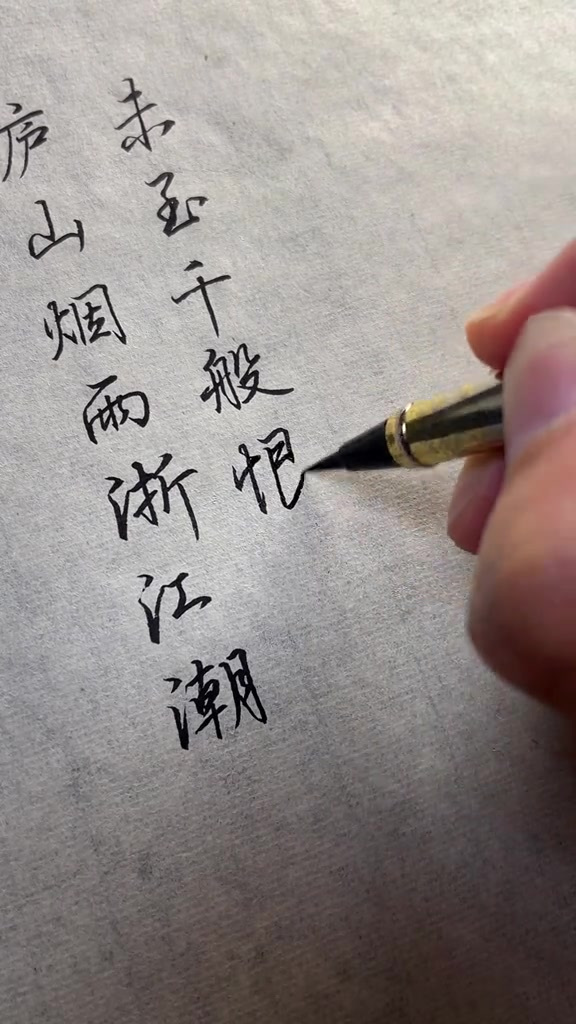 庐山烟雨浙江潮
未至千般恨